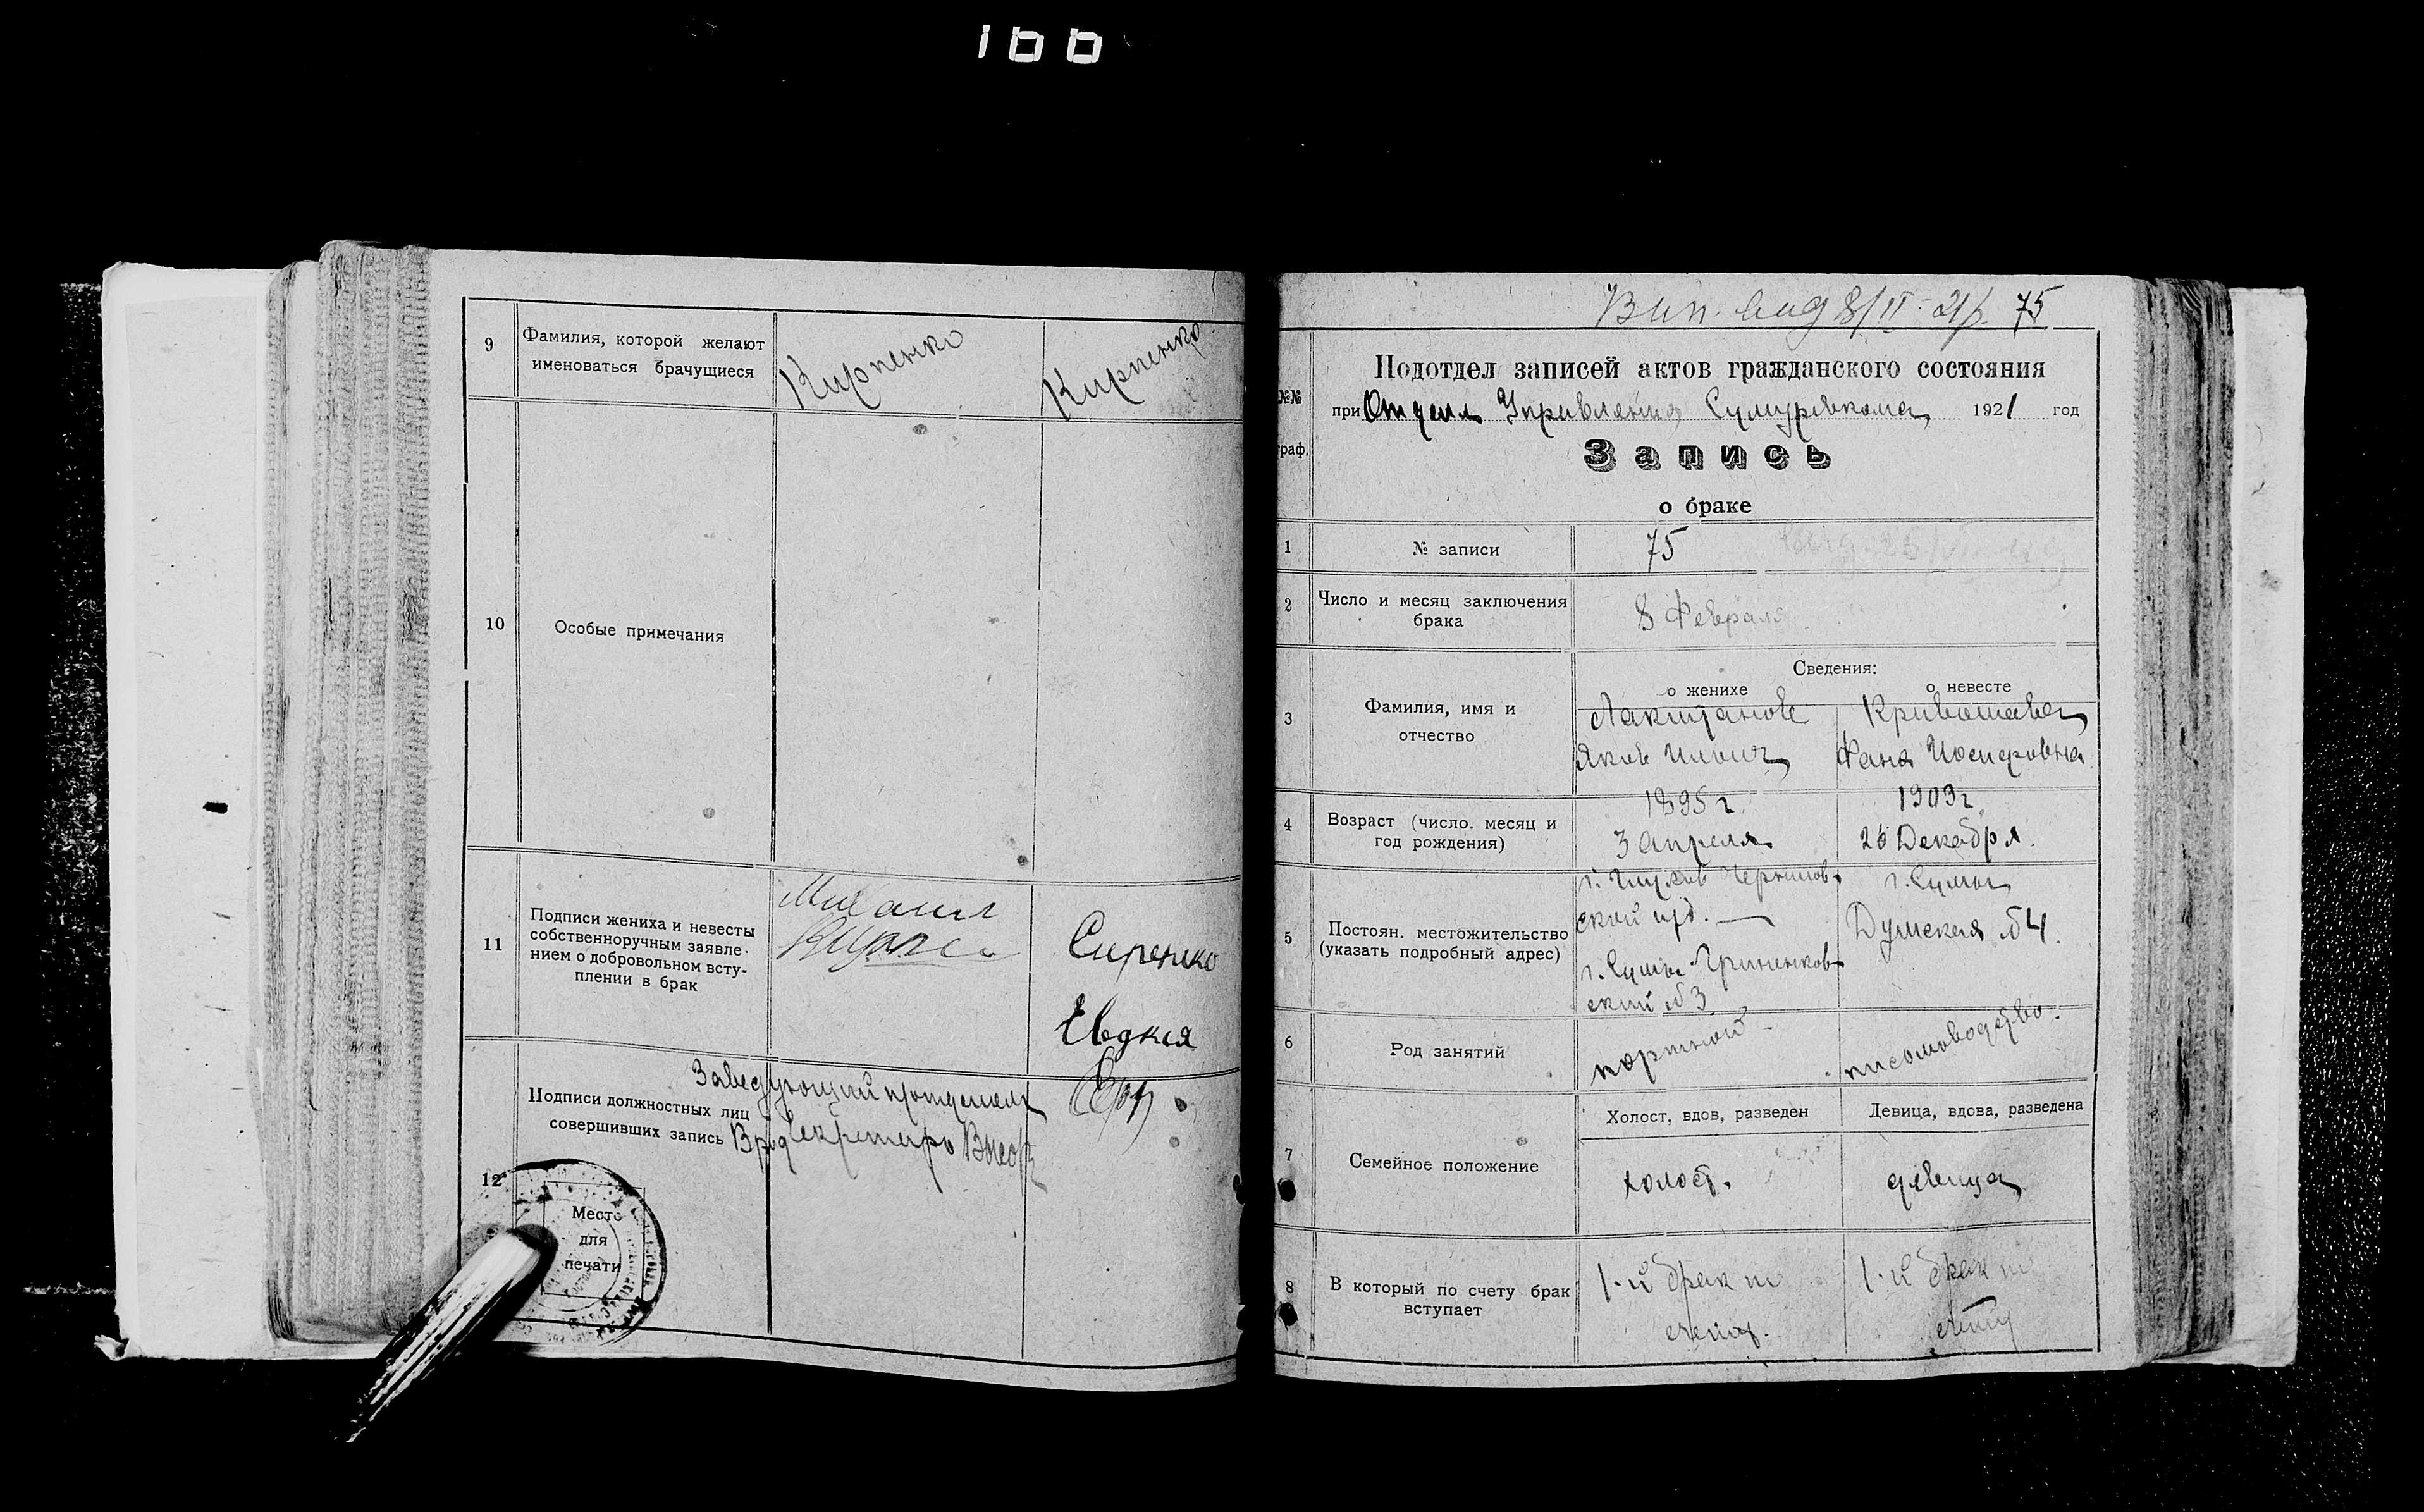 166
9
Фамилия, которой желают
именоваться брачущиеся
Кирпенко
Кирпенко
10
Особые примечания
11
Подписи жениха и невесты
собственноручным заявле-
нием о добровольном всту-
плении в брак
Михаил
Сиренко
Евдкея
12
Подписи должностных лиц
совершивших запись
Заведующий
Секретарь
Место
для
печати
Вып. выд 8/II-21 75
№№
граф.
Подотдел записей актов гражданского состояния
при Отделе Управления 1921 год
Запись
о браке
1
№ записи
75
2
Число и месяц заключения
брака
8 Февраля
Сведения:
о женихе
о невесте
3
Фамилия, имя и
отчество
Яков Ильич
Фаня Иосифовна
4
Возраст (число, месяц и
год рождения)
1895 г.
3 Апреля
1903 г.
26 Декабря.
5
Постоян. местожительство
(указать подробный адрес)
г. Глухов Чернигов-
ской губ.
г. Сумы
г. Сумы
Думская №4.
6
Род занятий
портной
письмоводство.
7
Семейное положение
Холост, вдов, разведен
Девица, вдова, разведена
холост.
девица
8
В который по счету брак
вступает
1-й брак по
счету.
1-й брак по
счету